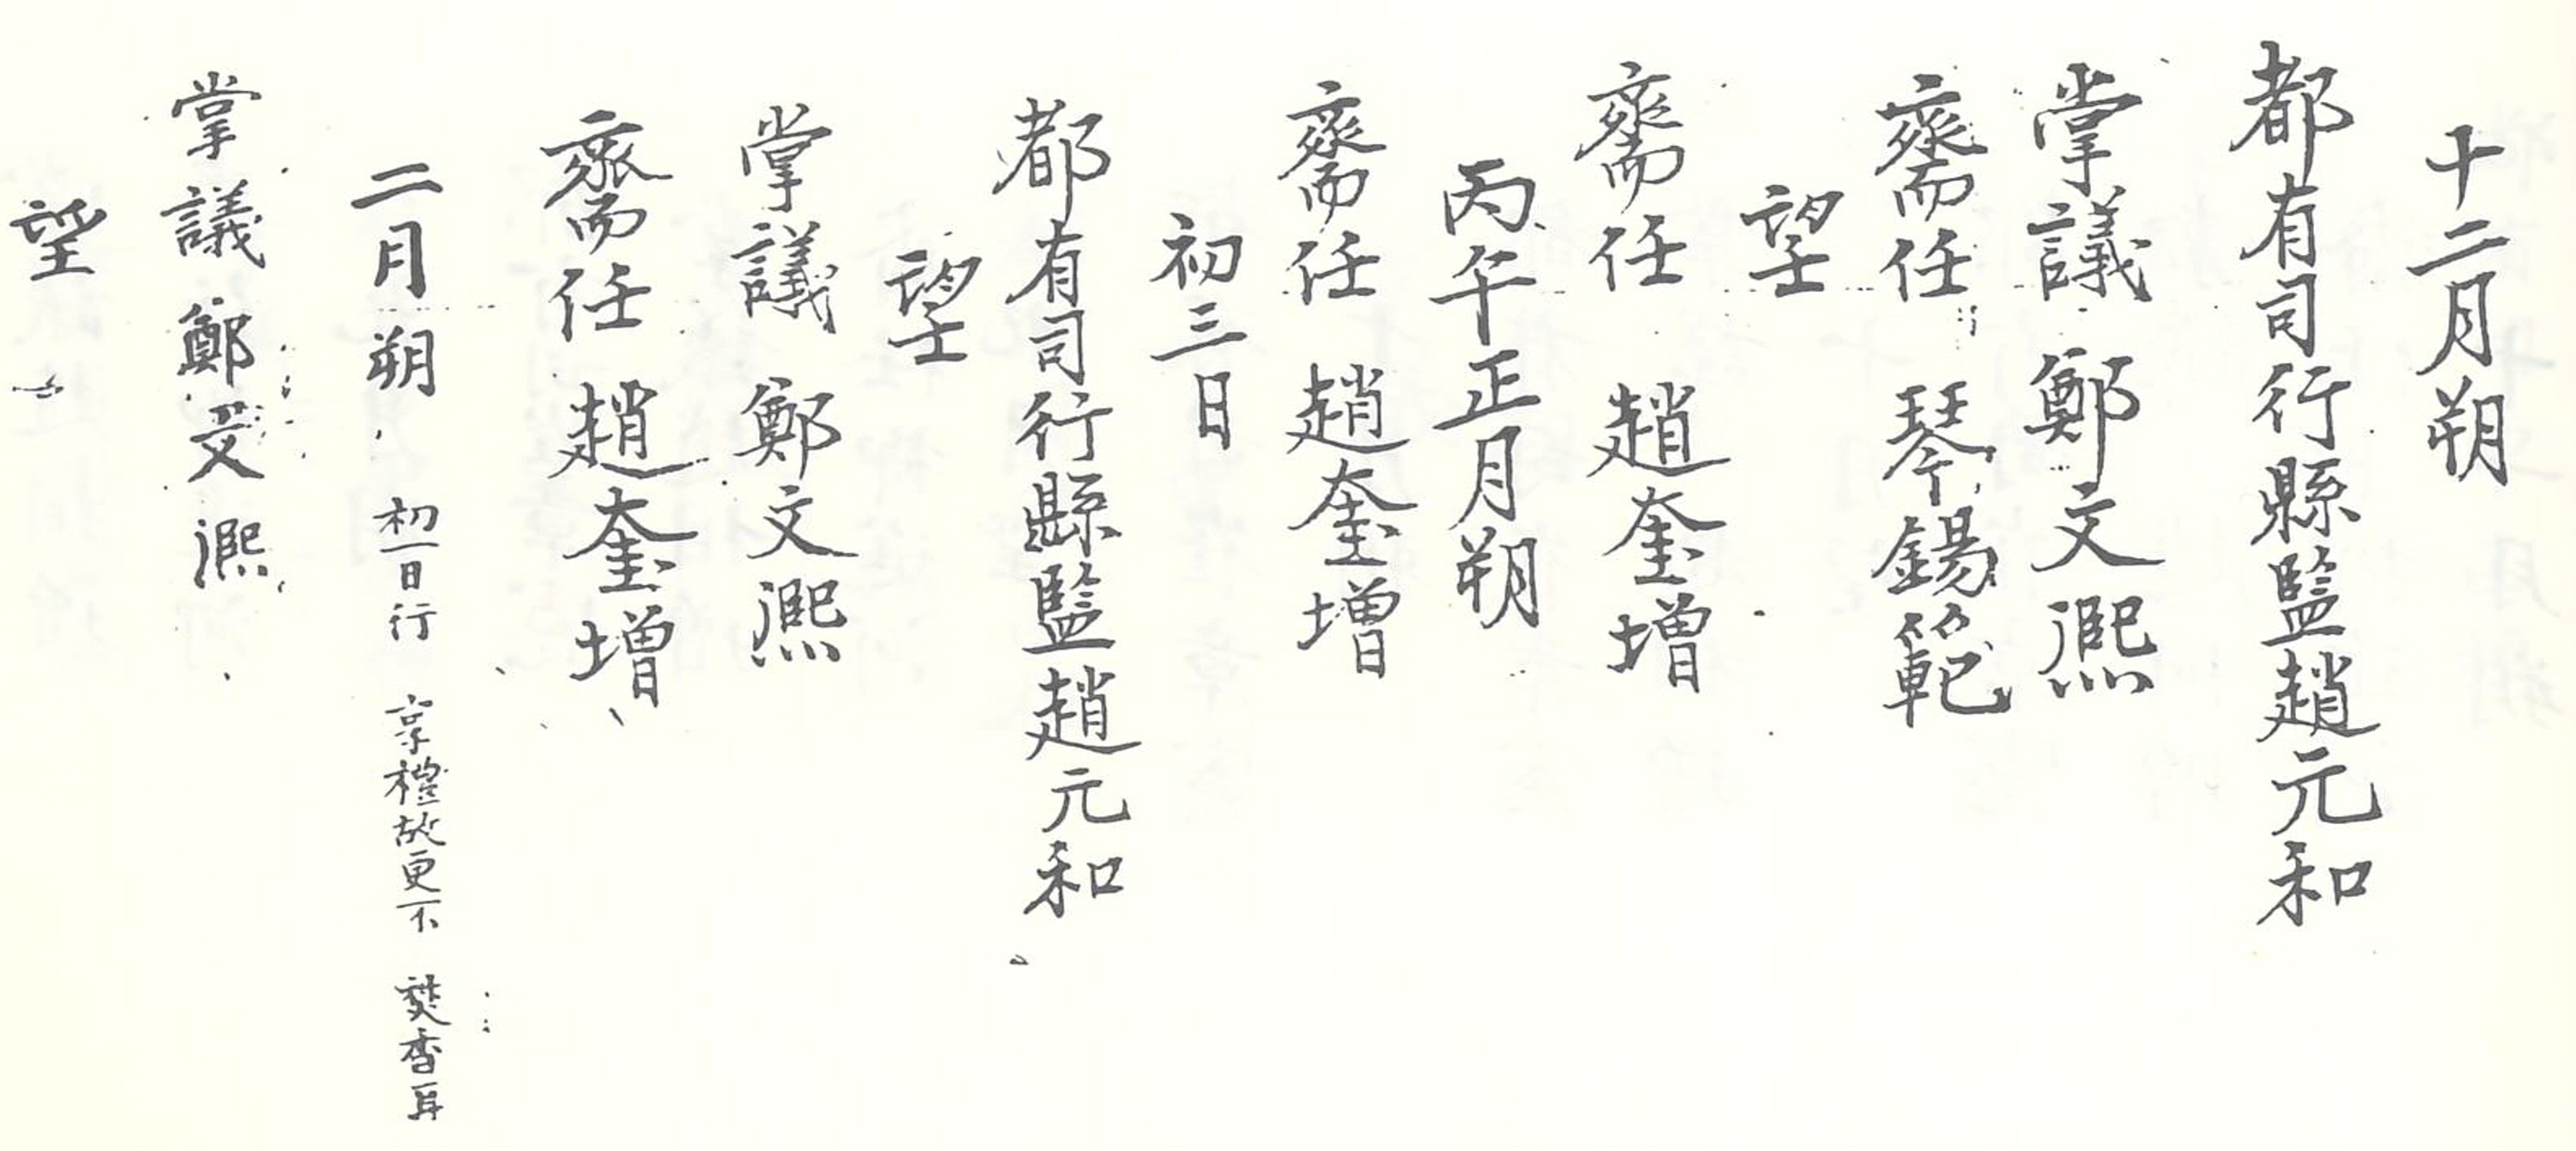 十二月朔
都有司行縣監趙元和
掌議 鄭文凞
齋任 琴錫範
望
齋任 趙奎增
丙午正月朔
齋任 趙奎增
初三日
都有司行縣監趙元和
望
掌議 鄭文凞
齋任 趙奎增
二月朔 初一日行 享禮故更不 焚香耳
掌議 鄭文凞
望